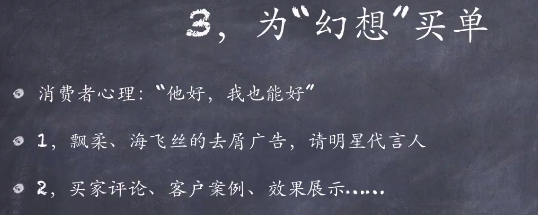 3，为“幻想”买单
消费者心理：“他好，我也能好”
1，飘柔、海飞丝的去屑广告，请明星代言人
2，买家评论、客户案例、效果展示……